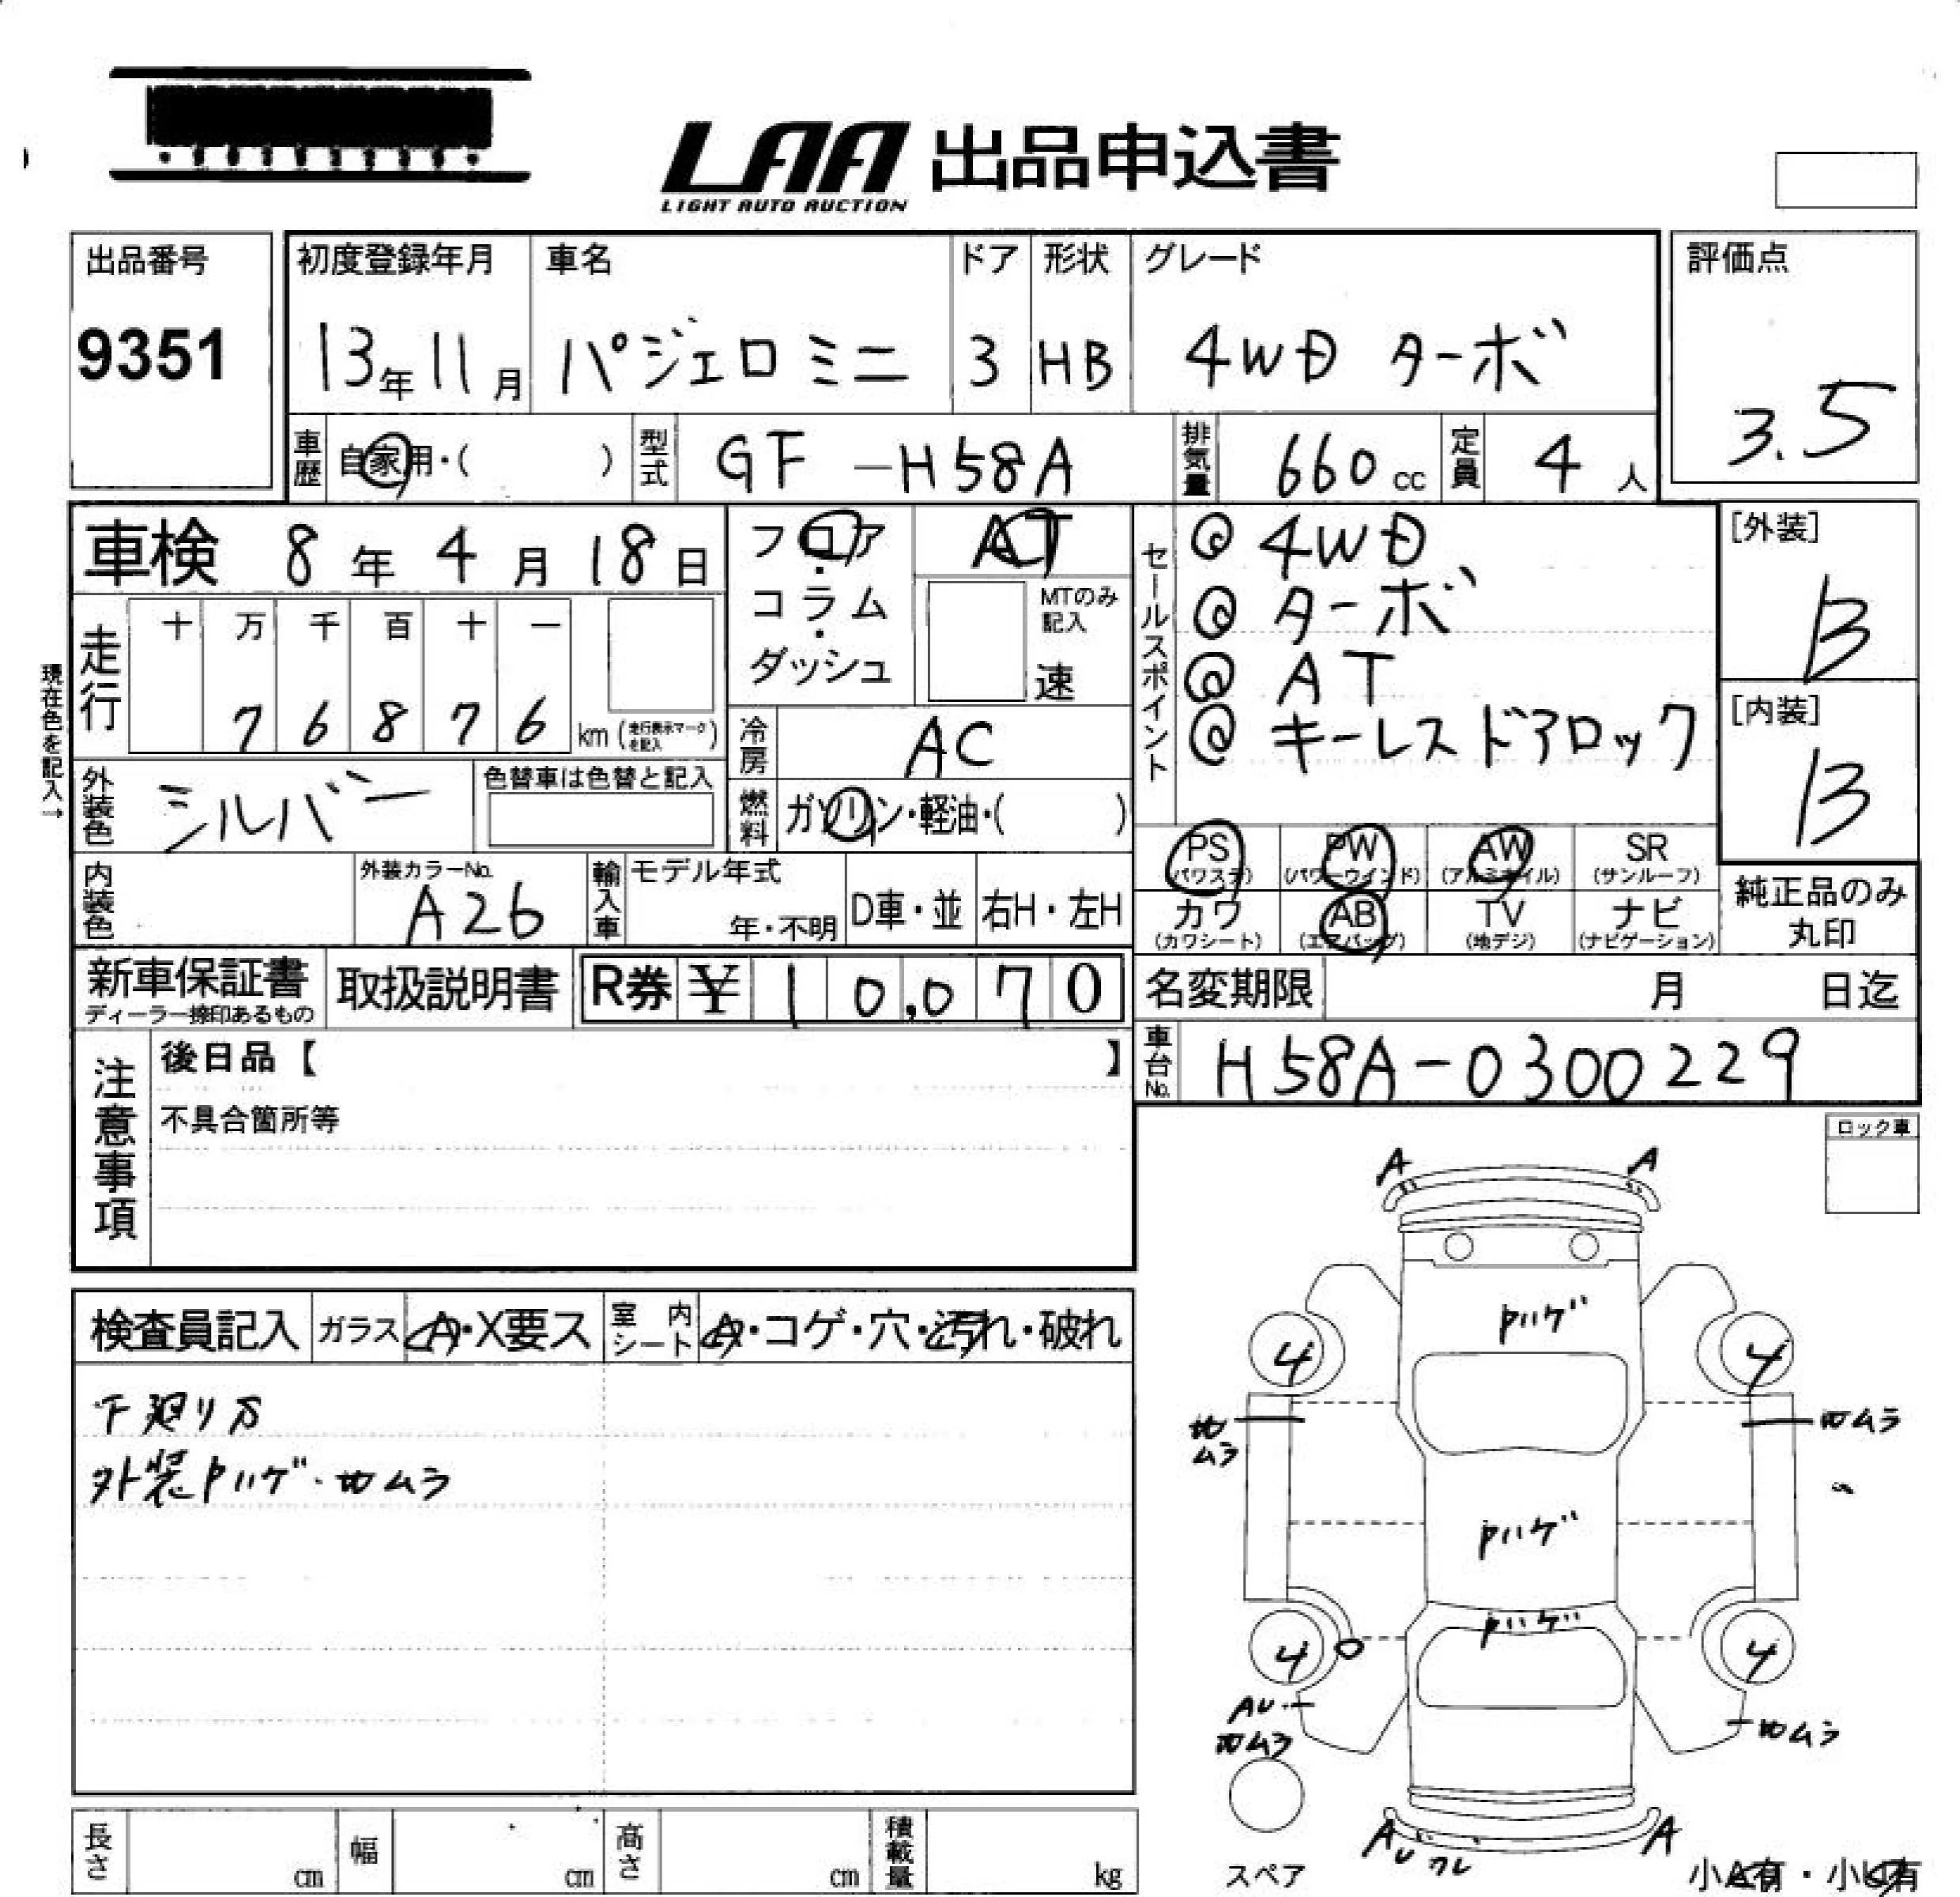 LAA 出品申込書
LIGHT AUTO AUCTION
出品番号
9351
初度登録年月 車名 ドア 形状 グレード
13年11月 パジェロミニ 3 HB 4WD ターボ
評価点
3.5
車歴 自家用・( ) 型式 GF-H58A 排気量 660cc 定員 4人
車検 8年4月18日
フロア・コラム・ダッシュ
AT
MTのみ記入
速
セールスポイント
@ 4WD
@ ターボ
@ AT
@ キーレスドアロック
[外装]
B
[内装]
B
現在色を記入→
走行 十 万 千 百 十 一
7 6 8 7 6 km (走行表示マークを記入)
冷房 AC
外装色 シルバー 色替車は色替と記入
燃料 ガソリン・軽油・( )
内装色 外装カラーNo. A26
輸入車 モデル年式 年・不明 D車・並 右H・左H
PS (パワステ) PW (パワーウインド) AW (アルミホイル) SR (サンルーフ)
カワ (カワシート) AB (エアバッグ) TV (地デジ) ナビ (ナビゲーション)
純正品のみ
丸印
新車保証書 取扱説明書 R券 ¥10,070
ディーラー捺印あるもの
名変期限 月 日迄
車台No. H58A-0300229
注意事項
後日品【 】
不具合箇所等
ロック車
検査員記入 ガラス A・X要ス 室内シート A・コゲ・穴・汚れ・破れ
下廻りサ
外装Pハゲ・地ムラ
A A
Pハゲ
4 4
地ムラ 地ムラ
Pハゲ
Pハゲ
4 4
AU
地ムラ 地ムラ
A A
U
スペア
小A有・小U有
長さ cm 幅 cm 高さ cm 積載量 kg